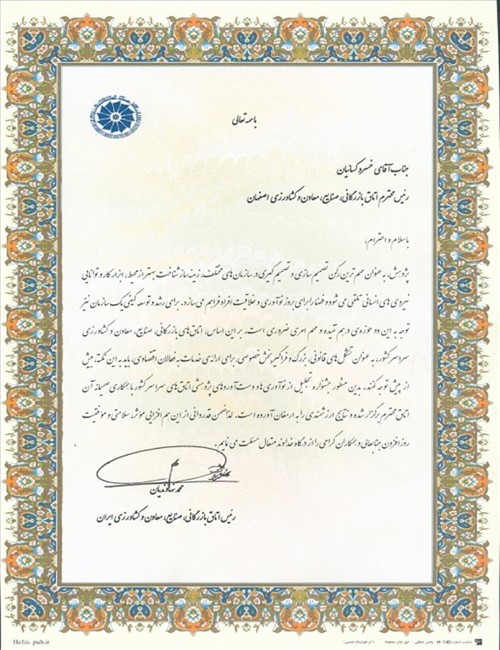 باسمه تعالی
جناب آقای خسرو کسائیان
رئیس محترم اتاق بازرگانی، صنایع، معادن و کشاورزی اصفهان
با سلام و احترام،
پژوهش، به عنوان مهم ترین رکن تصمیم سازی و تصمیم گیری در سازمان های مختلف، زمینه ساز شناخت بهتر از محیط، ابزار کار و توانایی
نیروی های انسانی تلقی می شود و فضا را برای بروز نوآوری و خلاقیت افراد فراهم می سازد. برای رشد و توسعه کیفی یک سازمان نیز
توجه به این دو حوزه ی درهم تنیده و مهم امری ضروری است. بر این اساس، اتاق های بازرگانی، صنایع، معادن و کشاورزی
سراسر کشور، به عنوان تشکل های قانونی، بزرگ و فراگیر بخش خصوصی، برای ارائه ی خدمات به فعالان اقتصادی، باید به این نکته، بیش
از پیش توجه کنند. بدین منظور جشنواره تجلیل از نوآوری ها و دست آوردهای پژوهشی اتاق های سراسر کشور با همکاری صمیمانه آن
اتاق محترم برگزار شده و نتایج ارزشمندی را به ارمغان آورده است. لذا ضمن قدردانی از این هم افزایی موثر، سلامتی و موفقیت
روز افزون جنابعالی و همکاران گرامی را از درگاه خداوند متعال مسئلت می نمایم.
محمد نهاوندیان
رئیس اتاق بازرگانی، صنایع، معادن و کشاورزی ایران
Hefzi-pub.ir